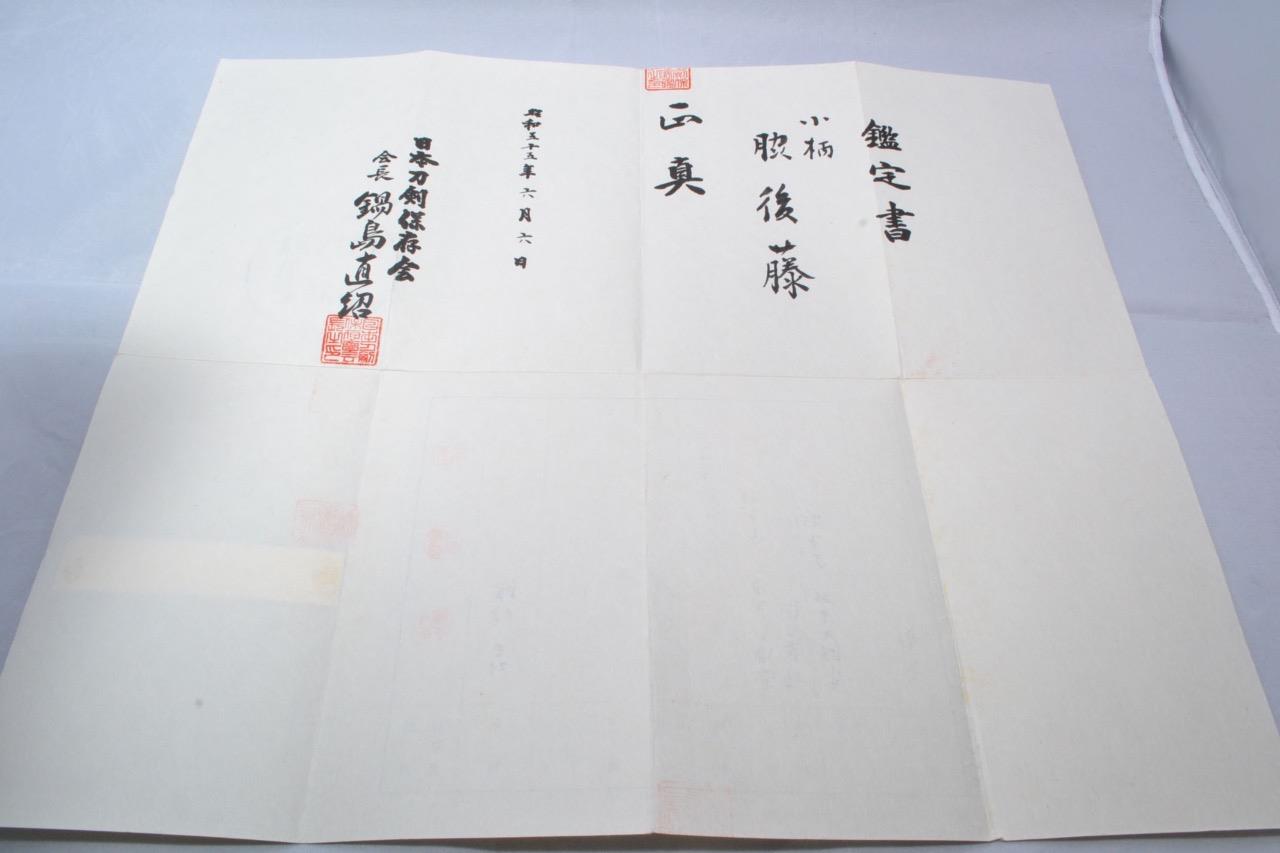 鑑定書
小柄
脇後藤
正真
昭和五十五年六月六日
日本刀剣保存会
会長 鍋島直紹